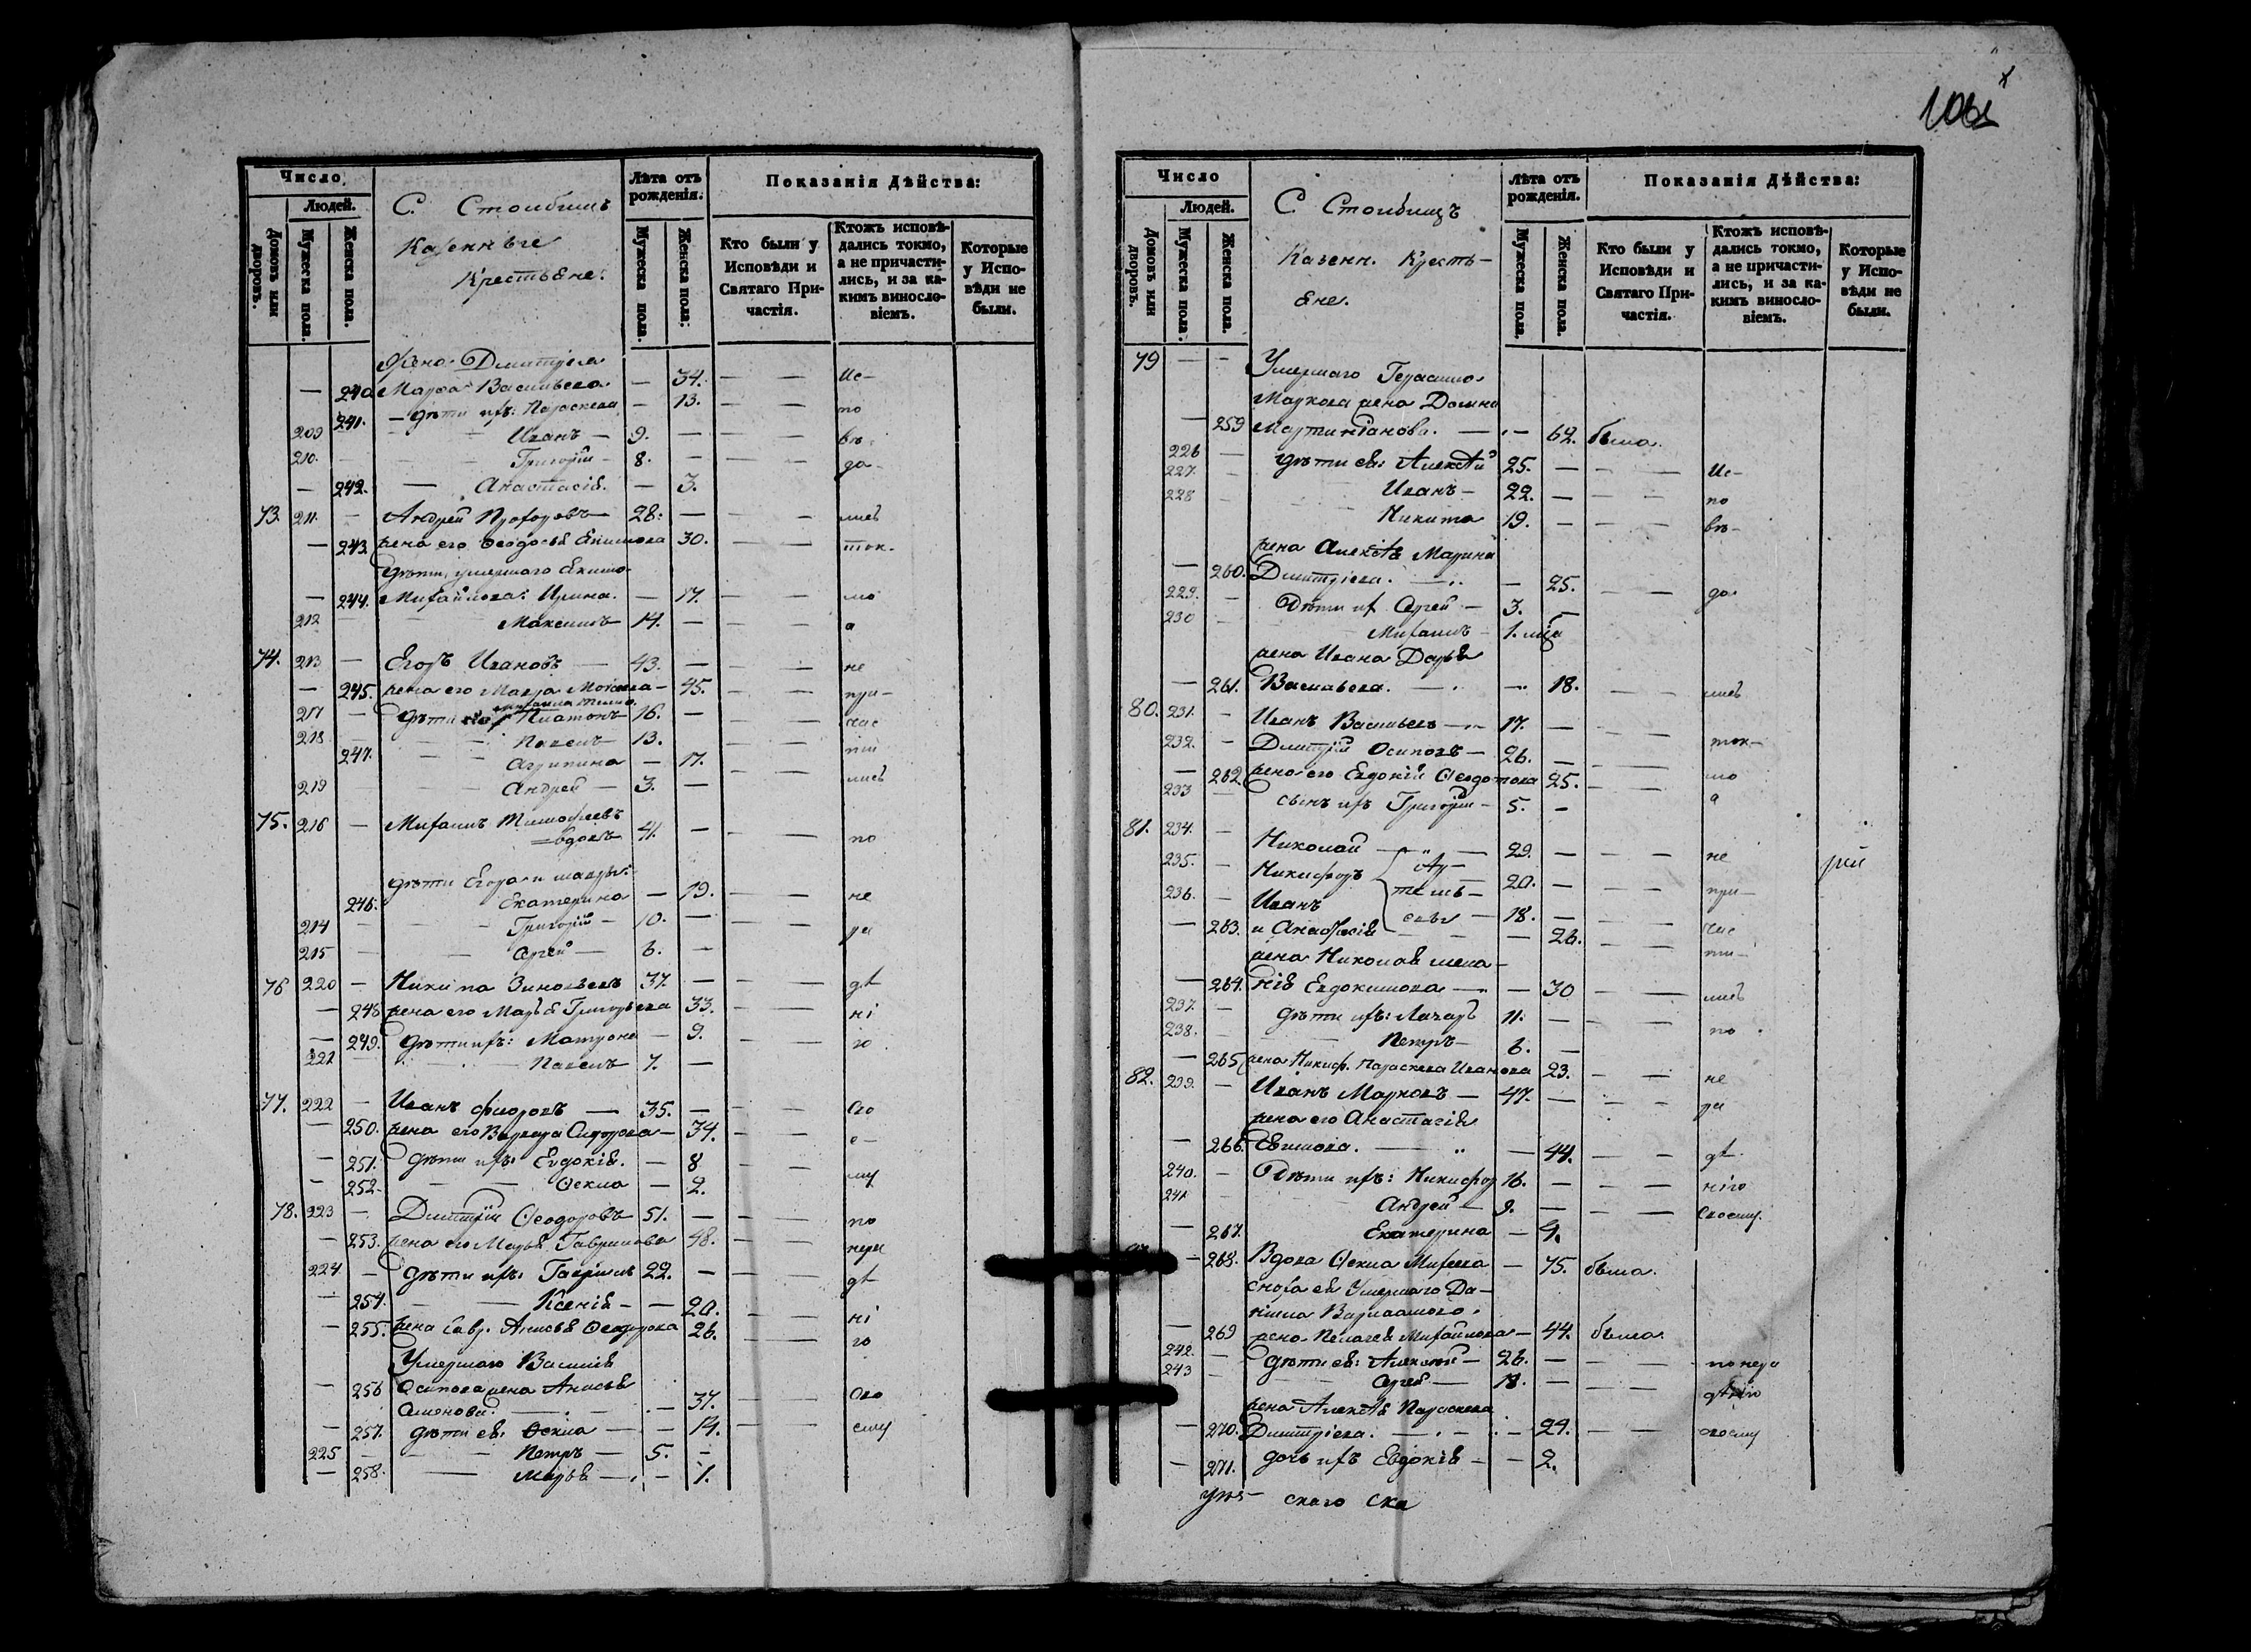 Число
Людей.
Домовъ или дворовъ.
Мужеска пола.
Женска пола.
С. Столбищъ
Казенные
Крестьяне.
Лѣта отъ рожденія.
Мужеска пола.
Женска пола.
Показанія Дѣйства:
Кто были у Исповѣди и Святаго Причастія.
Ктожъ исповѣдались токмо, а не причастились, и за какимъ винословіемъ.
Которые у Исповѣди не были.
жена Димитрія
— 240 Марѳа Васильева — 34. — — Ис-
241. — дѣти ихъ: Параскева — 13. по
209 Иванъ — 9. — — — вѣ-
210. Григорій — 8. — — — да-
— 242. — Анастасія — 3.
73. 211. — Андрей Прохоровъ — 28. — — — лись
— 243. жена его Ѳеодосья Екимова 30. — — ток-
дѣти умершаго Екима
— 244. Михайлова: Ирина. — 17. — — мо
212 Максимъ — 14. — — — а
74. 213 — Егоръ Ивановъ — 43. — — — не
— 245. жена его Мавра — 45. — — при-
217 — дѣти Платонъ 16. — час
218 Павелъ — 13. ти
247. Агрипина — 17. лись
219 Андрей — 3. —
75. 216 — Михаилъ Тимофеевъ
вдовъ 41. — — — по
дѣти Егора и Мавры:
246. Екатерина — 19. — — не
214 Григорій — 10. — ра
215 Сергей — 6. —
76 220 — Никита Зиновьевъ 37. — — — дѣ
— 248 жена его Марья Григорьева 33. — — ні
— 249. дѣти ихъ: Матрона — 9. — — ю
221 Павелъ 7. —
77. 222 — Иванъ Фиоровъ — 35. — — — Сво
— 250. жена его Варвара Сидорова — 34. — — е-
— 251. дѣти ихъ: Евдокія. — 8 му
— 252. Ѳекла — 2.
78. 223 — Димитрій Ѳеодоровъ 51. — — — по
— 253. жена его Марья Гаврилова 48. — — нера
224 — дѣти ихъ: Гавріилъ 22. — — — дѣ
— 254. Ксенія — — 20. ні
— 255. жена Гавр. Анисья Ѳеодорова 26. — — го
Умершаго Василія
— 256 Осипова жена Анисья
Семенова. — 37. — — Сво
— 257. дѣти ея: Ѳекла — 14. — — ему
225 — Петръ — 5. —
— 258. — Марья — 1.
Число
Людей.
Домовъ или дворовъ.
Мужеска пола.
Женска пола.
С. Столбищъ
Казенн. Кресть-
яне.
Лѣта отъ рожденія.
Мужеска пола.
Женска пола.
Показанія Дѣйства:
Кто были у Исповѣди и Святаго Причастія.
Ктожъ исповѣдались токмо, а не причастились, и за какимъ винословіемъ.
Которые у Исповѣди не были.
79 — — Умершаго Герасима
Маркова жена Домна
— 259 Мартиніанова. — 62. была.
226 — дѣти ея: Алексѣй 25. — — — Ис-
227. Иванъ — 22. — — — по
228 Никита 19. — — — вѣ-
жена Алексѣя Марина
— 260. Димитріева. — 25. — — да-
229. — Дѣти их Сергей — 3. —
230 Михаилъ — 1. мѣс
жена Ивана Дарья
— 261. Васильева. — 18. — — лись
80. 231. — Иванъ Васильевъ — 17. — — —
232. — Димитрій Осиповъ — 26. — ток-
— 262. жена его Евдокія Ѳедотова 25. — — мо
233 — сынъ ихъ Григорій — 5. — а
81. 234. — Николай — 29. — — — не
235. — Никифоръ Ар- 20. — — — при-
236. — Иванъ темь- 18. — час
— 263. и Анастасія евы — 26. ти-
жена Николая мела-
— 264. нія Евдокимова — 30 — — лись
237. — дѣти ихъ: Лазарь 11. — — — по
238. Петръ — 6. —
— 265 жена Никиф. Параскева Иванова 23. — — не
82. 239. — Иванъ Марковъ — 47. — — — ра
жена его Анастасія
— 266. Евимова. — 44. — — дѣ
240. — Дѣти ихъ: Никифор 16. — — — нію
241 Андрей — 9. — — — своему.
— 267. Екатерина — 4.
— 268. Вдова Ѳекла Михеева — 75. была.
сноха ея Умершаго Да-
ніила Варлаамова
— 269 жена Пелагея Михайлова — 44. была.
242. — дѣти ея: Алексѣй — 26. — — — по нера
243 Сергей — 18. — — — дѣнію
жена Алексѣя Параскева
— 270. Димитріева. — 24. — — своему
— 271. дочь ихъ Евдокія — — 2.
скаго Ска